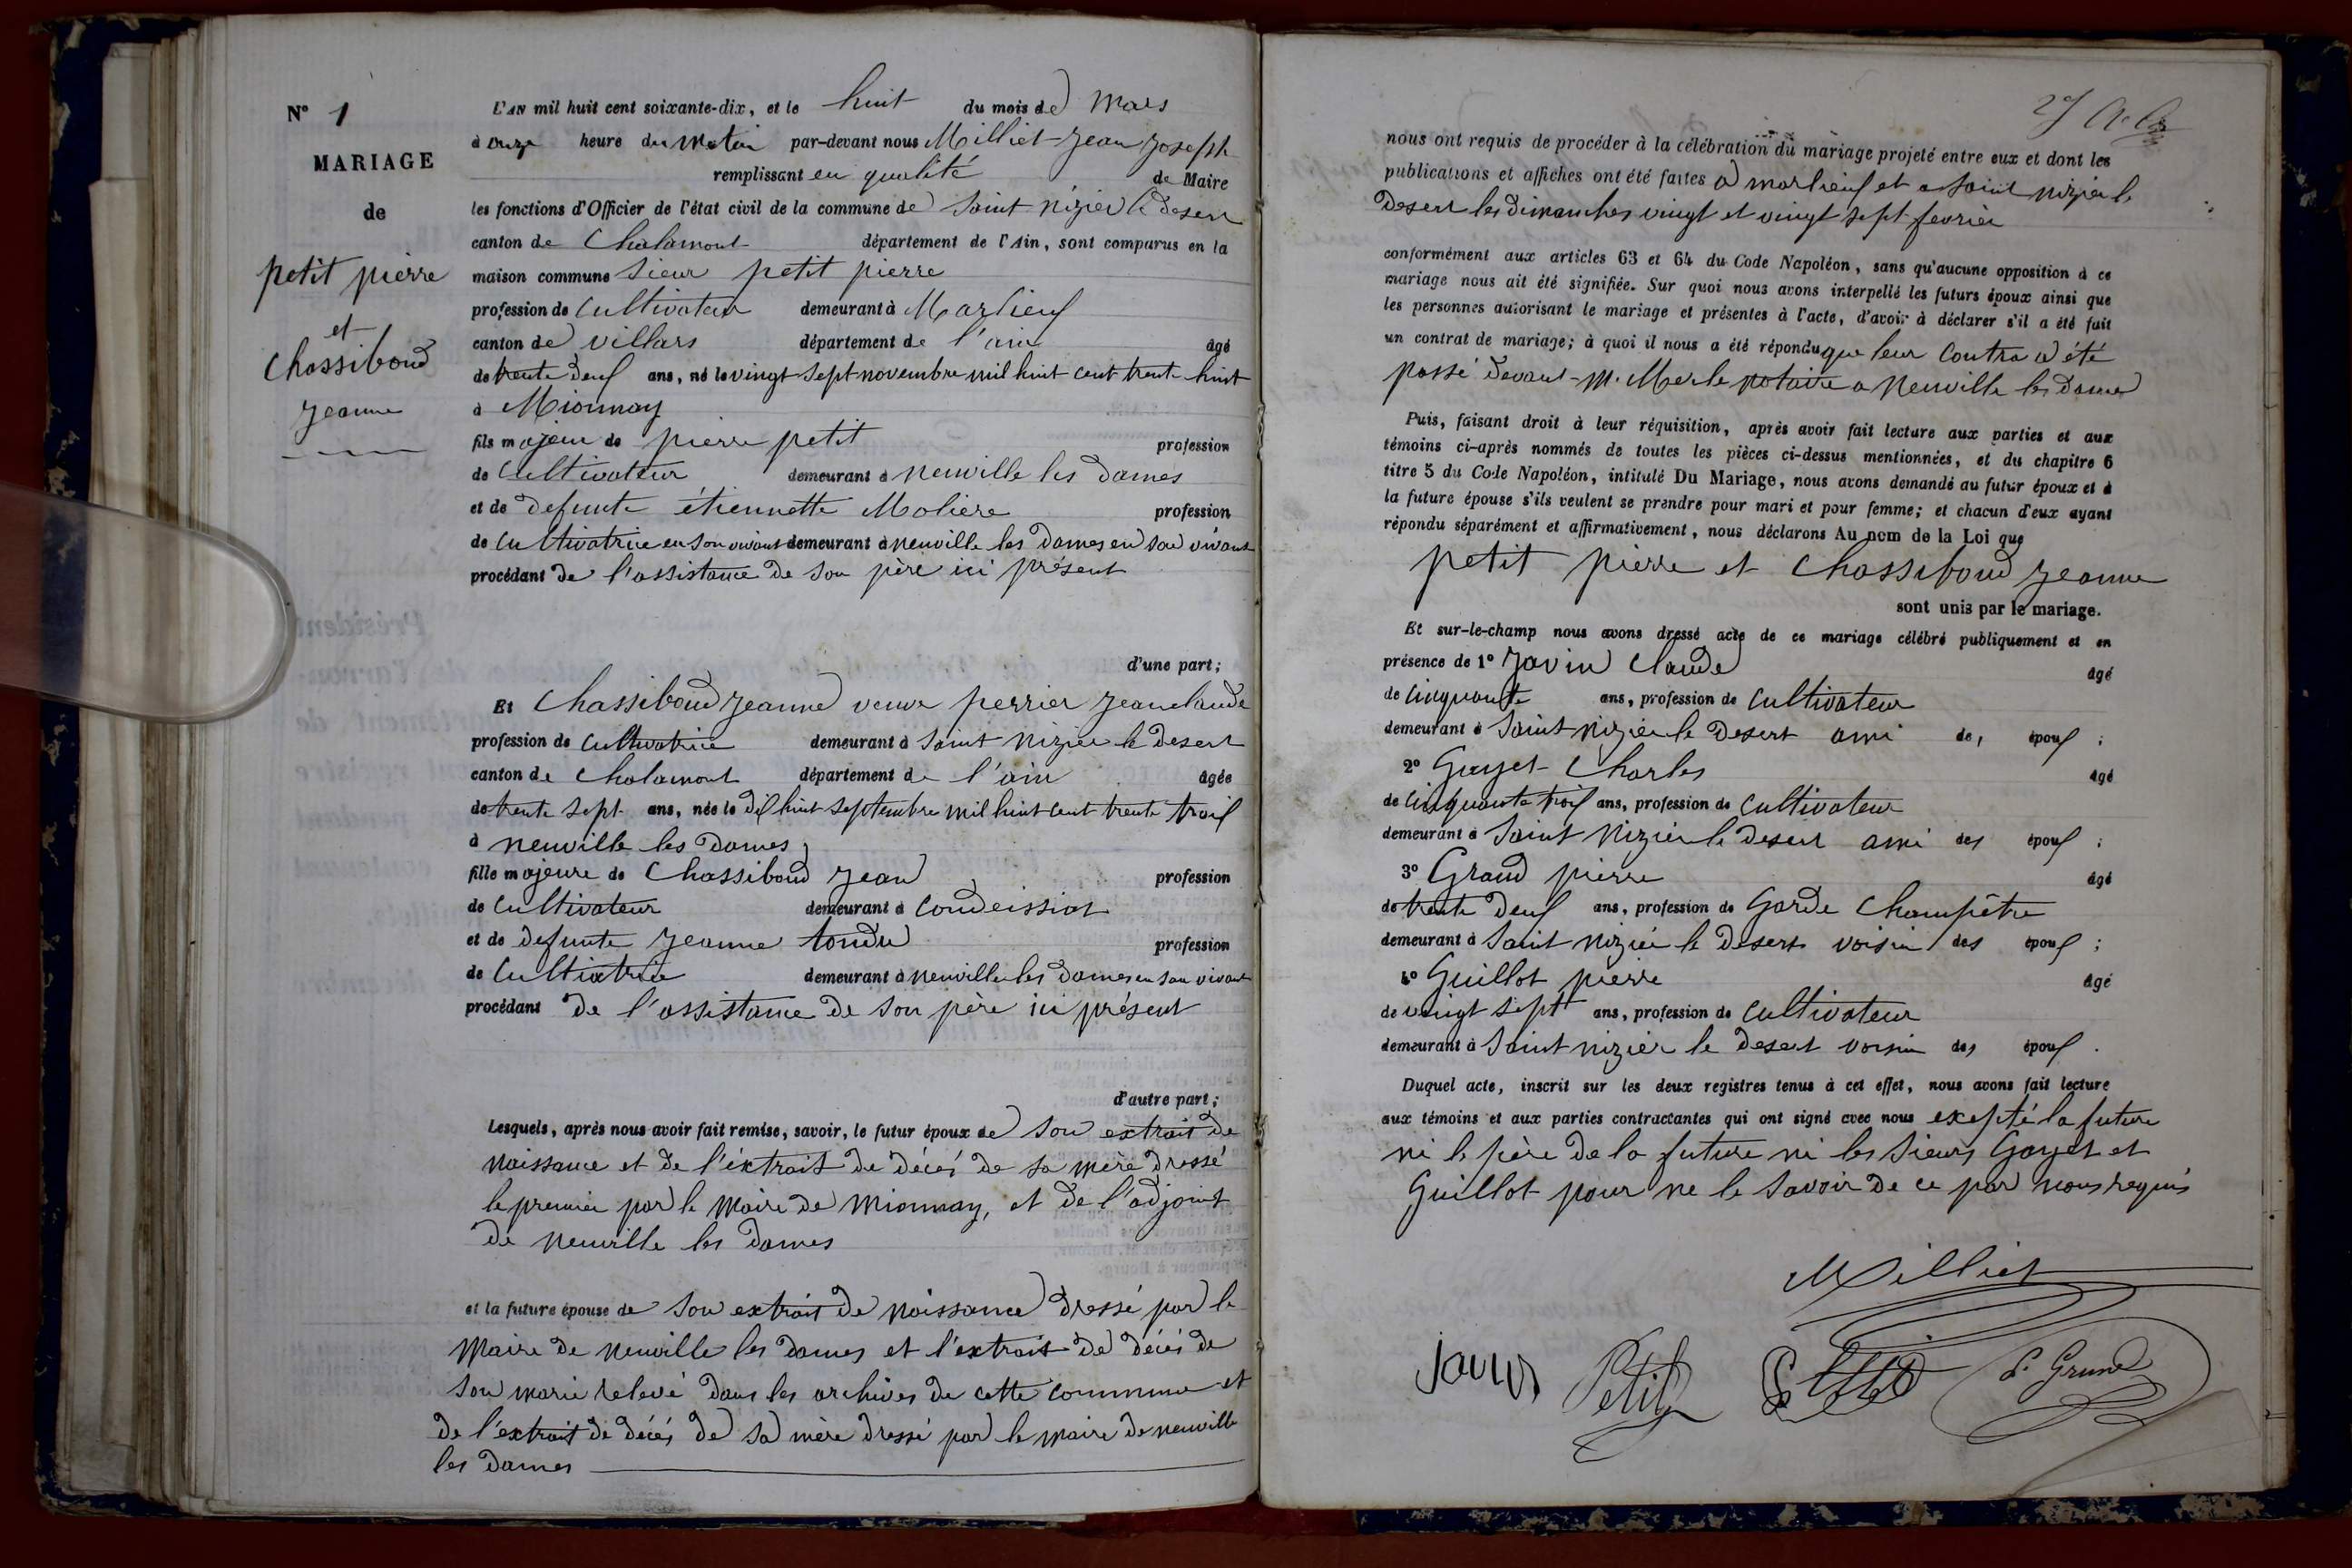 N° 1
MARIAGE
de
petit pierre
et
Chassiboud
Jeanne
L'AN mil huit cent soixante-dix, et le huit du mois de Mars
à onze heure du matin par-devant nous Milliet Jean Joseph
remplissant en qualité de Maire
les fonctions d'Officier de l'état civil de la commune de Saint Nizier le desert
canton de Chalamont département de l'Ain, sont comparus en la
maison commune Sieur petit pierre
profession de Cultivateur demeurant à Marlieux
canton de villars département de l'ain âgé
de trente deux ans, né le vingt sept novembre mil huit cent trente huit
à Mionnay
fils majeur de pierre petit profession
de Cultivateur demeurant à neuville les dames
et de defunte étiennette Moliere profession
de Cultivatrice en son vivant demeurant à neuville les Dames en son vivant
procédant de l'assistance de son père ici présent
d'une part;
Et Chassiboud Jeanne veuve perrier Jean claude
profession de Cultivatrice demeurant à Saint Nizier le desert
canton de Chalamont département de l'ain âgée
de trente sept ans, née le dix huit septembre mil huit cent trente trois
à neuville les Dames
fille majeure de Chassiboud Jean profession
de Cultivateur demeurant à Condeissiat
et de defunte Jeanne tondu profession
de Cultivatrice demeurant à neuville les Dames en son vivant
procédant de l'assistance de son père ici présent
d'autre part;
Lesquels, après nous avoir fait remise, savoir, le futur époux de son extrait de
naissance et de l'éxtrait de décés de sa mère dressé
le premier par le Maire de Mionnay, et de l'adjoint
de neuville les Dames
et la future épouse de son extrait de naissance dressé par le
Maire de neuville les dames et l'extrait de décés de
son marie relevé dans les archives de cette commune et
de l'éxtrait de décés de sa mère dressé par le maire de neuville
les Dames
27
nous ont requis de procéder à la célébration du mariage projeté entre eux et dont les
publications et affiches ont été faites a marlieux et a Saint nizier le
Desert les dimanches vingt et vingt sept fevrier
conformément aux articles 63 et 64 du Code Napoléon, sans qu'aucune opposition à ce
mariage nous ait été signifiée. Sur quoi nous avons interpellé les futurs époux ainsi que
les personnes autorisant le mariage et présentes à l'acte, d'avoir à déclarer s'il a été fait
un contrat de mariage; à quoi il nous a été répondu que leur Contra a été
passé devant M. Merle notaire a Neuville les dames
Puis, faisant droit à leur réquisition, après avoir fait lecture aux parties et aux
témoins ci-après nommés de toutes les pièces ci-dessus mentionnées, et du chapitre 6
titre 5 du Code Napoléon, intitulé Du Mariage, nous avons demandé au futur époux et à
la future épouse s'ils veulent se prendre pour mari et pour femme; et chacun d'eux ayant
répondu séparément et affirmativement, nous déclarons Au nom de la Loi que
petit pierre et Chassiboud Jeanne
sont unis par le mariage.
Et sur-le-champ nous avons dressé acte de ce mariage célébré publiquement et en
présence de 1° Javin Claude âgé
de Cinquante ans, profession de Cultivateur
demeurant à Saint Nizier le Desert ami des époux ;
2° Gayet Charles âgé
de Cinquante trois ans, profession de Cultivateur
demeurant à Saint Nizier le desert ami des époux ;
3° Grand pierre âgé
de trente deux ans, profession de Garde Champêtre
demeurant à Saint nizier le desert voisin des époux ;
4° Guillot pierre âgé
de vingt sept ans, profession de Cultivateur
demeurant à Saint nizier le desert voisin des époux .
Duquel acte, inscrit sur les deux registres tenus à cet effet, nous avons fait lecture
aux témoins et aux parties contractantes qui ont signé avec nous exepté la future
ni le père de la future ni les sieurs Gayet et
Guillot pour ne le savoir de ce par nous requis
Milliet
Javin Petit P. Grand